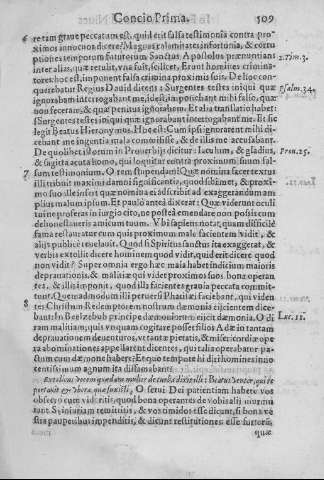 Concio Prima. 509
6 re tam graue peccatum est, quid erit falsa testimonia contra pro
ximos innocuos dicere? Magnas calamitates, infortunia, & corru
ptiones temporum futurorum Sanctus Apostolus prænuntians 2. Tim. 3.
inter alias, quæ retulit, vna fuit, scilicet, Erunt homines crimina-
tores: hoc est, imponent falsa crimina proximis suis. De hoc con-
querebatur Regius Dauid dicens: Surgentes testes iniqui quæ Psalm. 34.
ignorabam interrogabant me, id est, imponebant mihi falso, quæ
non feceram, & quæ penitus ignorabam. Et alia translatio habet:
Surgentes testes iniqui quæ ignorabam interrogabant me. Et sic
legit Beatus Hieronymus. Hoc est: Cum ipsi ignorarent mihi di-
cebant me ingentia mala commisisse, & de illis me accusabant.
De quolibet istorum in Prouerbijs dicitur: Iaculum, & gladius, Prou. 25.
& sagitta acuta homo, qui loquitur contra proximum suum fal-
7 sum testimonium. O rem stupendam! Quæ nomina facer textus
illi tribuit maxima damni significantia, quod sibimet, & proxi-
mo suo ille infert quæ nomina ei adscribit ad exaggerandum am
plius malum ipsum. Et paulo antea dixerat: Quæ viderunt oculi
tui ne proferas in iurgio cito, ne postea emendare non possis cum
dehonestaueris amicum tuum. Vbi sapiens notat, quam difficile
fama restauratur eum quis proximum male facientem vidit, &
alijs publice reuelauit. Quod si Spiritus sanctus ita exaggerat, &
verbis extollit dicere hominem quod vidit, quid erit dicere quod
non vidit? Super omnia ergo hæc maia habet indicium maioris
deprauationis, & malitiæ qui videt proximos suos bona operan
tes, & illis imponit, quod illa facientes grauia peccata commit-
tunt. Quemadmodum illi peruersi Pharisæi faciebant, qui viden
8 tes Christum Redemptorem nostrum dæmonia eijcientem dice-
bant: In Beelzebub principe dæmoniorum eijcit dæmonia. O di Luc. 11.
ram malitiam, quis vnquam cogitare posset filios Adæ in tantam
deprauationem deuenturos, vt tantæ pietatis, & misericordiæ ope
ra abominationes appellarent dicentes, qui talia operabatur pa-
ctum cum dæmone habere: Et quo tempore hi diri homines inno-
centissimum agnum ita diffamabant
Extollens vocem quædam mulier de turba dixit illi: Beatus venter, qui te
portauit & vbera, quæ suxisti, O serui Dei patientiam habete vos
obsecro cum videritis, quod bona operantes de vobis alij murmu
rant. Si iniuriam remittitis, & vos timidos esse dicunt, si bona ve
stra pauperibus impenditis, & dicunt restitutiones esse furtorũ
quæ